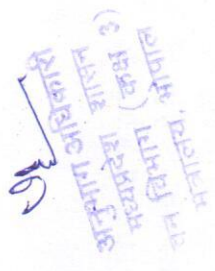 अनुभाग अधिकारी
मध्यप्रदेश शासन
वन विभाग (कक्ष 3)
मंत्रालय भोपाल